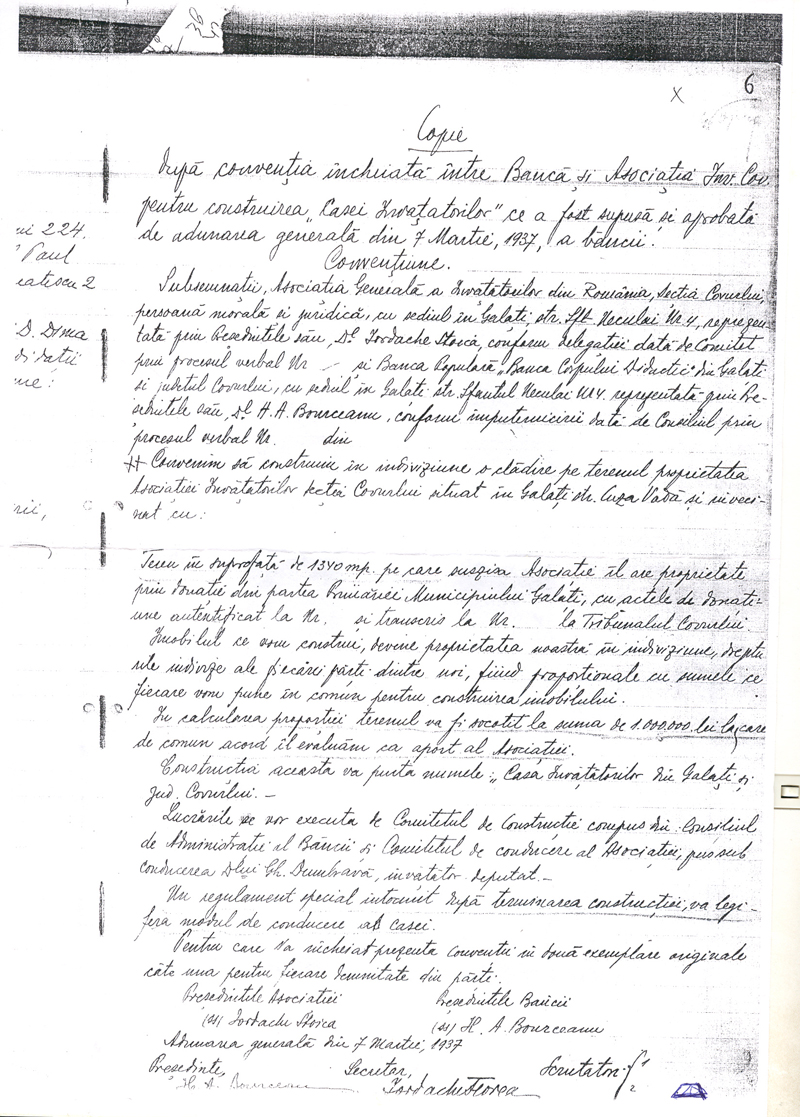 6
x
Copie
după convenția încheiată între Bancă și Asociația Inv. Cov.
pentru construirea „Casei Invățatorilor" ce a fost supusă și aprobată
de adunarea generală din 7 Martie, 1937, a băncii.
Convențiune.
Subsemnatii, Asociatia Generală a Invățătorilor din România, Sectia Covurlui,
persoană morală si juridică, cu sediul în Galați, str. Sft. Neculai Nr. 4, reprezen-
tată prin Presedintele său, Dl Iordache Stoica, conform delegatiei dată de Comitet
prin procesul verbal Nr — si Banca Populară „Banca Corpului Didactic" din Galati
si judetul Covurlui, cu sediul în Galati str. Sfantul Neculai Nr 4 reprezentată prin Pre-
sedintele său, Dl H. A. Bourceanu, conform împuternicirii dată de Consiliul prin
procesul verbal Nr. din
++ Convenim să construim în indiviziune o clădire pe terenul proprietatea
Asociatiei Invătătorilor sectia Covurlui situat în Galați str. Cuza Vodă și riveci-
nat cu:
Teren în suprafată de 1340 mp. pe care suszisa Asociatie îl are proprietate
prin donatie din partea Primăriei Municipiului Galati, cu actele de donati-
une autentificat la Nr. si transcris la Nr. la Tribunalul Covurlui.
Imobilul ce vom construi, devine proprietatea noastră în indiviziune, dreptu
rile indivize ale fiecărei părti dintre noi, fiind proportionale cu sumele ce
fiecare vom pune în comun pentru construirea imobilului.
In calcularea proportiei terenul va fi socotit la suma de 1.000.000 lei la care
de comun acord îl evaluăm ca aport al Asociatiei.
Constructia aceasta va purta numele: „Casa Invătătorilor din Galați și
jud. Covurlui. —
Lucrările se vor executa de Comitetul de Constructie compus din: Consiliul
de Administratie al Băncii și Comitetul de conducere al Asociatiei, pus sub
conducerea Dlui Gh. Dumbravă, invatator deputat. —
Un regulament special intocmit după terminarea constructiei, va legi-
fera modul de conducere al casei.
Pentru care s'a încheiat prezenta Conventii în două exemplare originale
câte una pentru fiecare demnitate din părti.
Presedintele Asociatiei Presedintele Băncii
(ss) Iordache Stoica (ss) H. A. Bourceanu
Adunarea generală din 7 Martie, 1937
Președinte, Secretar, Scrutatori { 1
H. A. Bourceanu Iordache Florea 2
224.
Paul
2
D. Dima